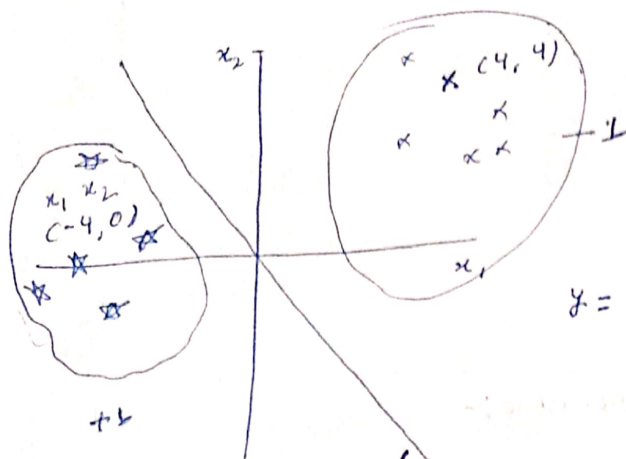 x₂
(4, 4)
-1
x₁ x₂
(-4, 0)
x₁
y =
+1